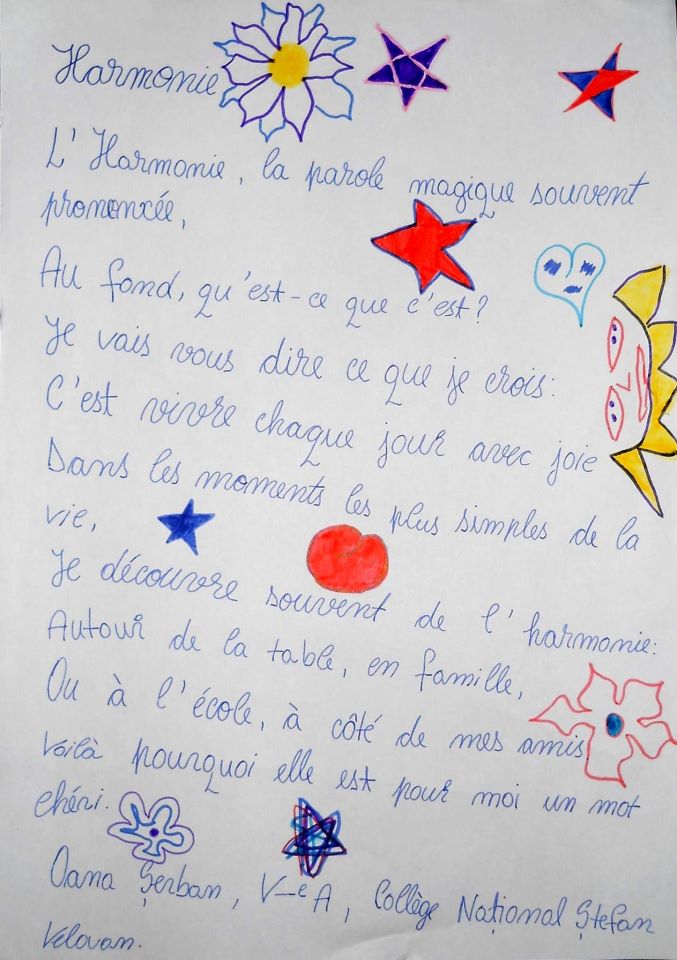 Harmonie
L'Harmonie, la parole magique souvent
prononcée,
Au fond, qu'est-ce que c'est?
Je vais vous dire ce que je crois:
C'est vivre chaque jour avec joie
Dans les moments les plus simples de la
vie,
Je découvre souvent de l'harmonie:
Autour de la table, en famille,
Ou à l'école, à côté de mes amis
Voilà pourquoi elle est pour moi un mot
chéri.
Oana Șerban, V-e A, Collège Național Ștefan
Velovan.